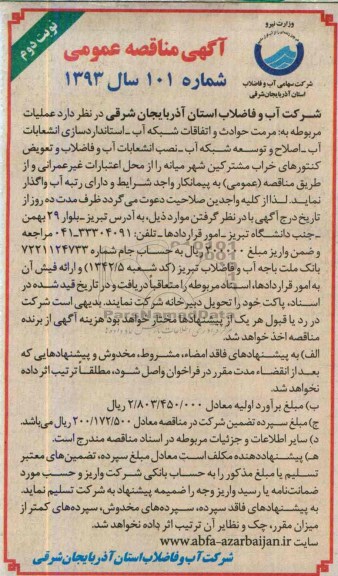 نوبت دوم
وزارت نیرو
شرکت سهامی آب و فاضلاب
استان آذربایجان شرقی
آگهی مناقصه عمومی
شماره ۱۰۱ سال ۱۳۹۳
شرکت آب و فاضلاب استان آذربایجان شرقی در نظر دارد عملیات
مربوطه به: مرمت حوادث و اتفاقات شبکه آب ـ استانداردسازی انشعابات
آب ـ اصلاح و توسعه شبکه آب ـ نصب انشعابات آب و فاضلاب و تعویض
کنتورهای خراب مشترکین شهر میانه را از محل اعتبارات غیرعمرانی و از
طریق مناقصه (عمومی) به پیمانکار واجد شرایط و دارای رتبه آب واگذار
نمایـد. لـذا از کلیه واجدین صلاحیت دعوت می گردد ظرف مدت ده روز از
تاریخ درج آگهی با در نظر گرفتن موارد ذیل، به آدرس تبریز ـ بلوار ۲۹ بهمن
ـ جنب دانشگاه تبریز ـ امور قراردادها ـ تلفن: ۳۳۳۰۴۰۹۱-۰۴۱ مراجعه
و ضمن واریز مبلغ ریال به حساب جام شماره ۷۲۲۱۱۲۴۷۳۳
بانک ملت باجه آب و فاضلاب تبریز (کد شعبه ۱۳۴۲/۵) و ارائه فیش آن
به امور قراردادها، اسناد مربوطه را متعاقباً دریافت و در تاریخ قید شده در
اسناد، پاکت خود را تحویل دبیرخانه شرکت نمایند. بدیهی است شرکت
در رد یا قبول هر یک از پیشنهادها مختار خواهد بود هزینه آگهی از برنده
مناقصه اخذ خواهد شد.
الف) به پیشنهادهای فاقد امضاء، مشروط، مخدوش و پیشنهادهایی که
بعد از انقضاء مدت مقرر در فراخوان واصل شود، مطلقاً ترتیب اثر داده
نخواهد شد.
ب) مبلغ برآورد اولیه معادل ۲/۸۰۳/۴۵۰/۰۰۰ ریال
ج) مبلغ سپرده تضمین شرکت در مناقصه معادل ۲۰۰/۱۷۲/۵۰۰ ریال می‌باشد.
د) سایر اطلاعات و جزئیات مربوطه در اسناد مناقصه مندرج است.
هـ) پیشنهاددهنده مکلف است معادل مبلغ سپرده، تضمین‌های معتبر
تسلیم یا مبلغ مذکور را به حساب بانکی شرکت واریز و حسب مورد
ضمانت‌نامه یا رسید واریز وجه را ضمیمه پیشنهاد به شرکت تسلیم نماید.
به پیشنهادهای فاقد سپرده، سپرده‌های مخدوش، سپرده‌های کمتر از
میزان مقرر، چک و نظایر آن ترتیب اثر داده نخواهد شد.
سایت www.abfa-azarbaijan.ir
شرکت آب و فاضلاب استان آذربایجان شرقی